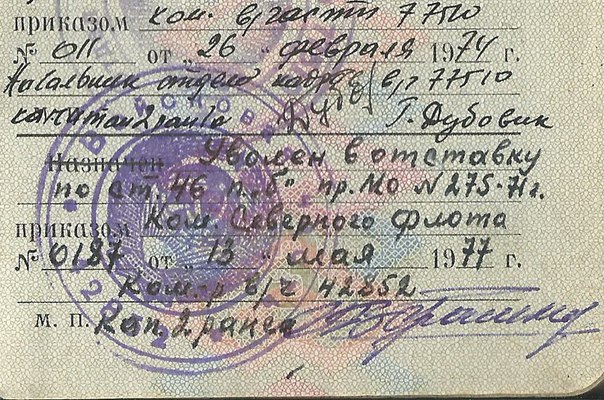 приказом ком. в/части 77510
№ 011 от "26" февраля 1974 г.
Начальник отдела кадров в/ч 77510
капитан 2 ранга Г. Дубовик
Назначен Уволен в отставку
по ст. 46 п. „б" пр. МО N 275-71г.
приказом Ком. Северного Флота
№ 0187 от "13" мая 1977 г.
Ком-р в/ч 42252
м. п. Кап. 2 ранга